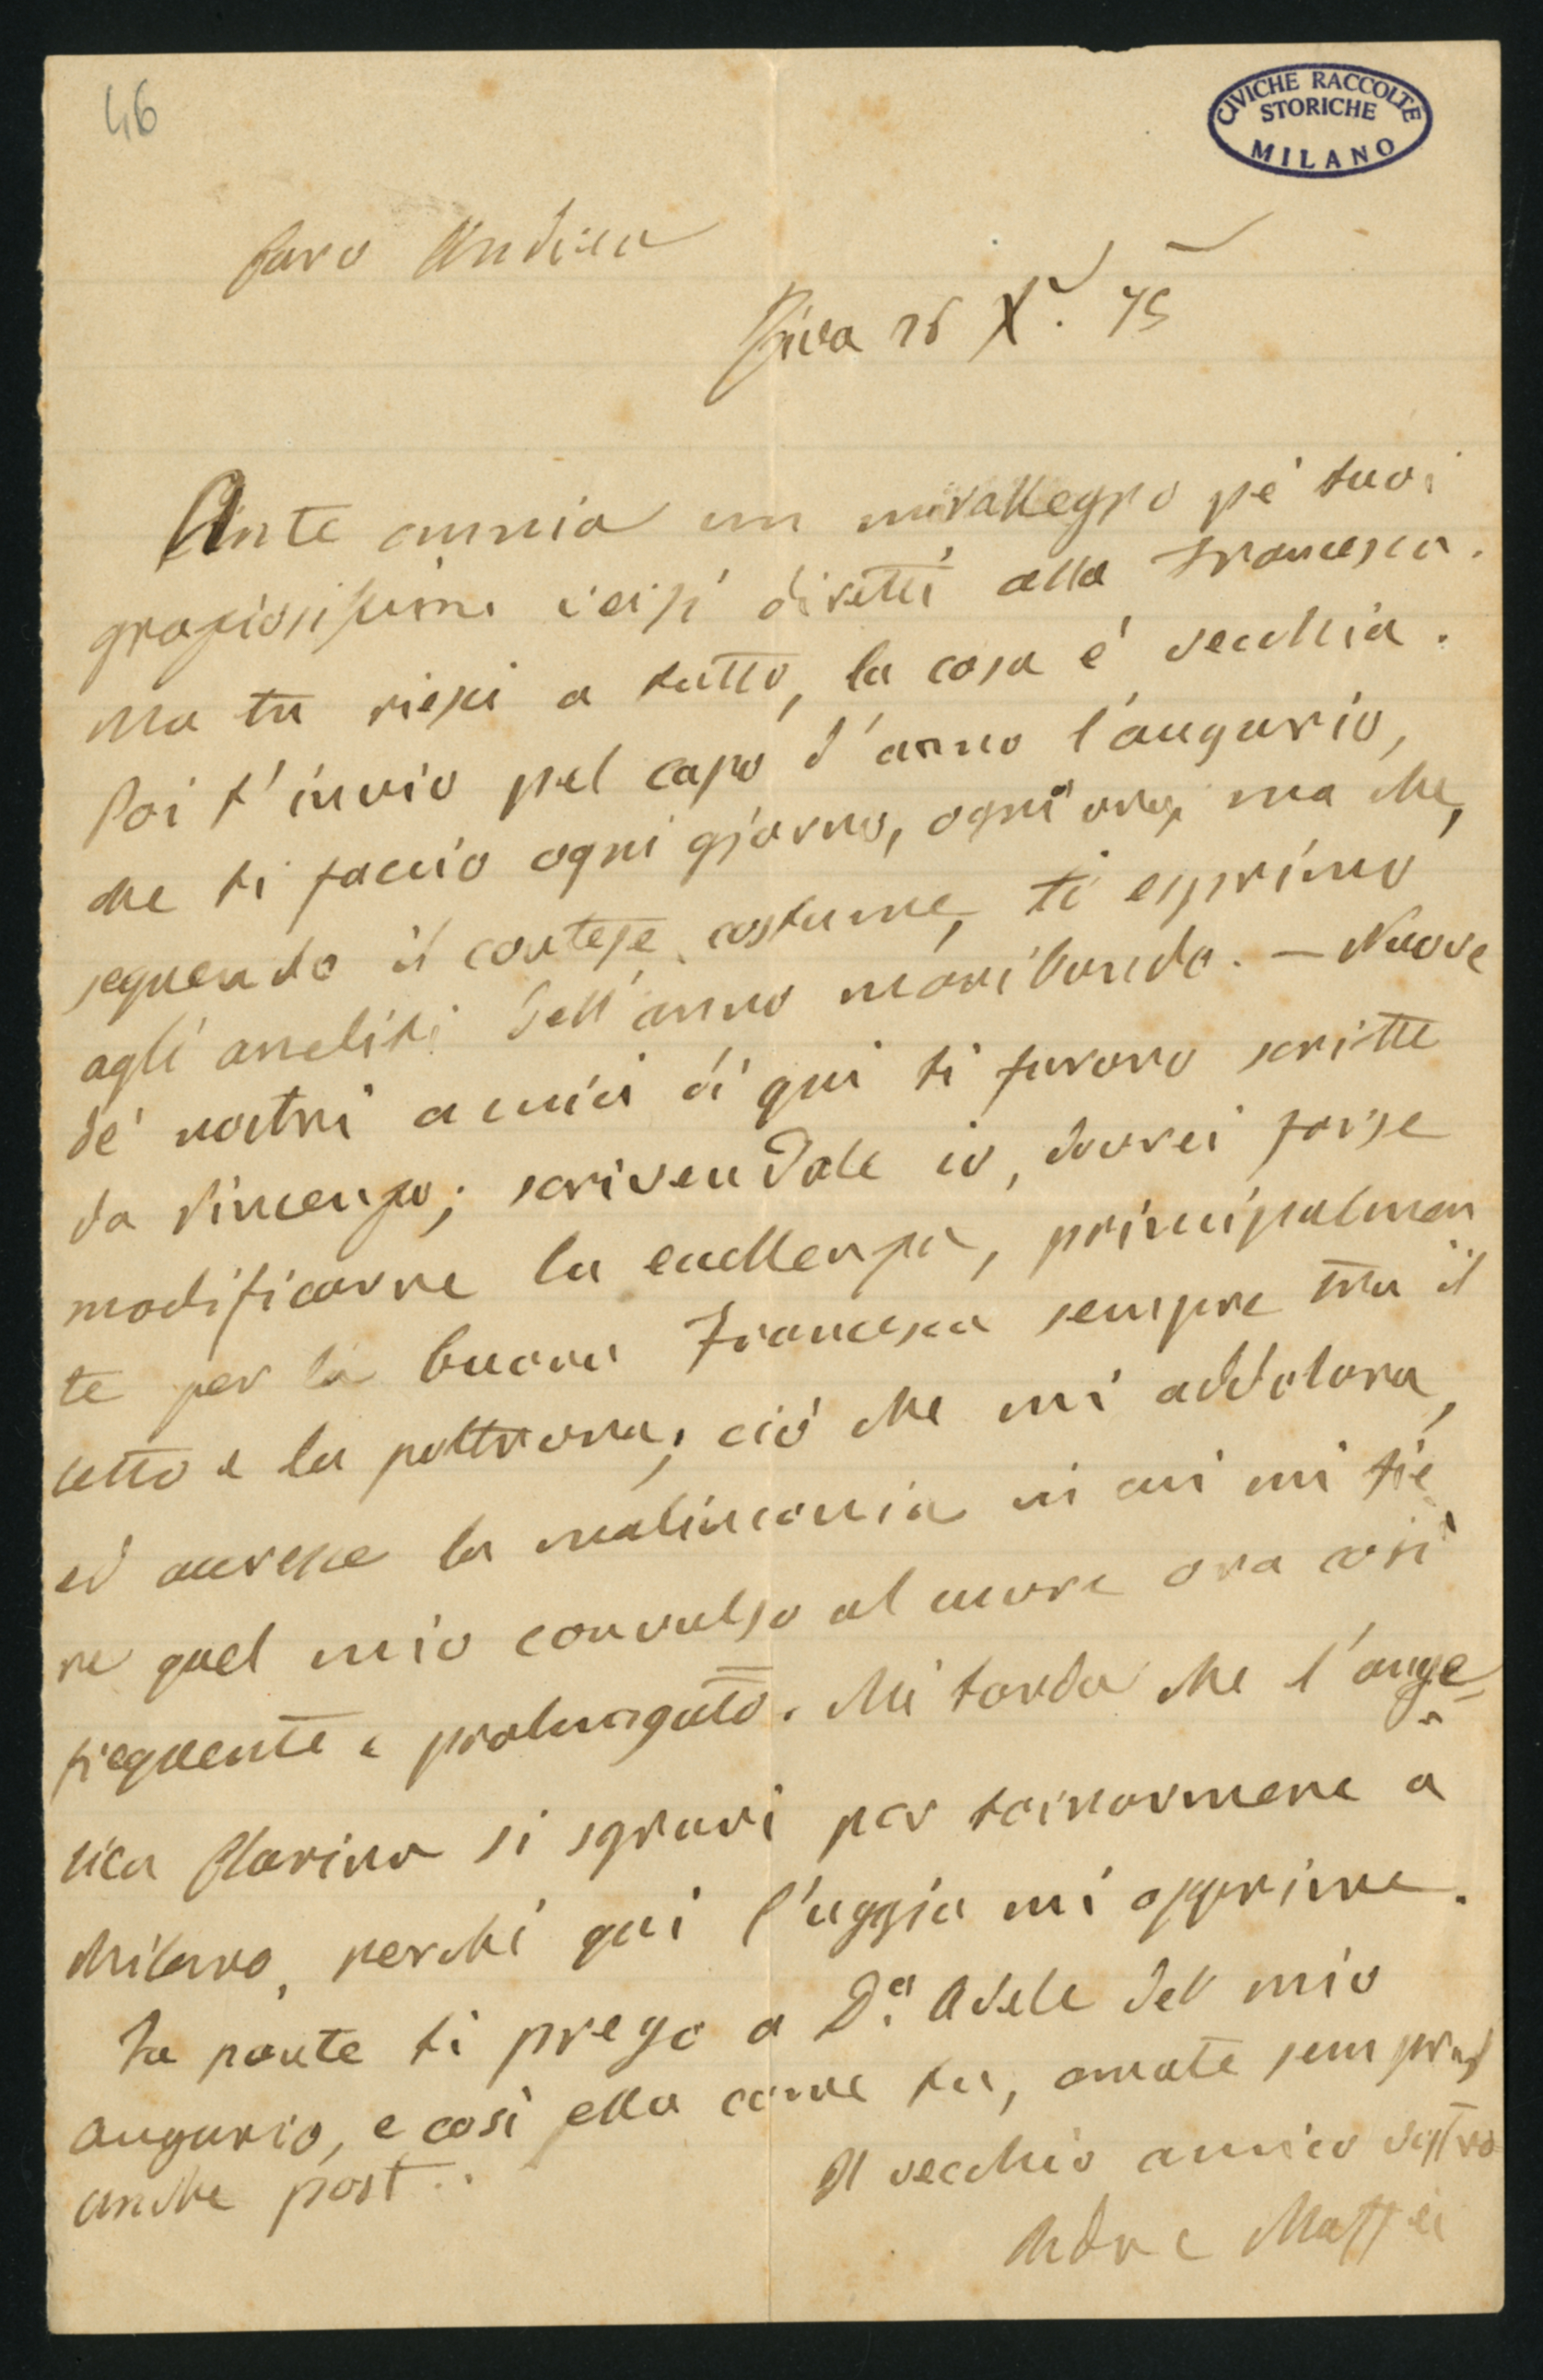 46
CIVICHE RACCOLTE
STORICHE
MILANO
Caro Andrea
Riva 26 X. 75
Ante omnia un mirallegro pe' tuoi
graziosissimi versi diretti alla Francesca.
Ma tu riesci a tutto, la cosa è vecchia.
Poi t'invio pel capo d'anno l'augurio,
che ti faccio ogni giorno, ogni ora, ma che,
seguendo il cortese costume, ti esprimo
agli aneliti dell'anno moribondo. – Nuove
de' nostri amici di qui ti furono scritte
da Vincenzo; scrivendole io, dovrei forse
modificarne la eccellenza, principalmen
te per la buona Francesca sempre tra il
letto e la poltrona, ciò che mi addolora,
ed accresce la malinconia in cui mi tie
ne quel mio convulso al cuore ora così
frequente e prolungato. Mi tarda che l'ange=
lica Clarina si sgravi per tornarmene a
Milano, perchè qui l'uggia mi opprime.
Fa parte ti prego a D.a Adele del mio
augurio, e così ella come tu, amate sempre
anche post..
Il vecchio amico vostro
Andrea Maffei